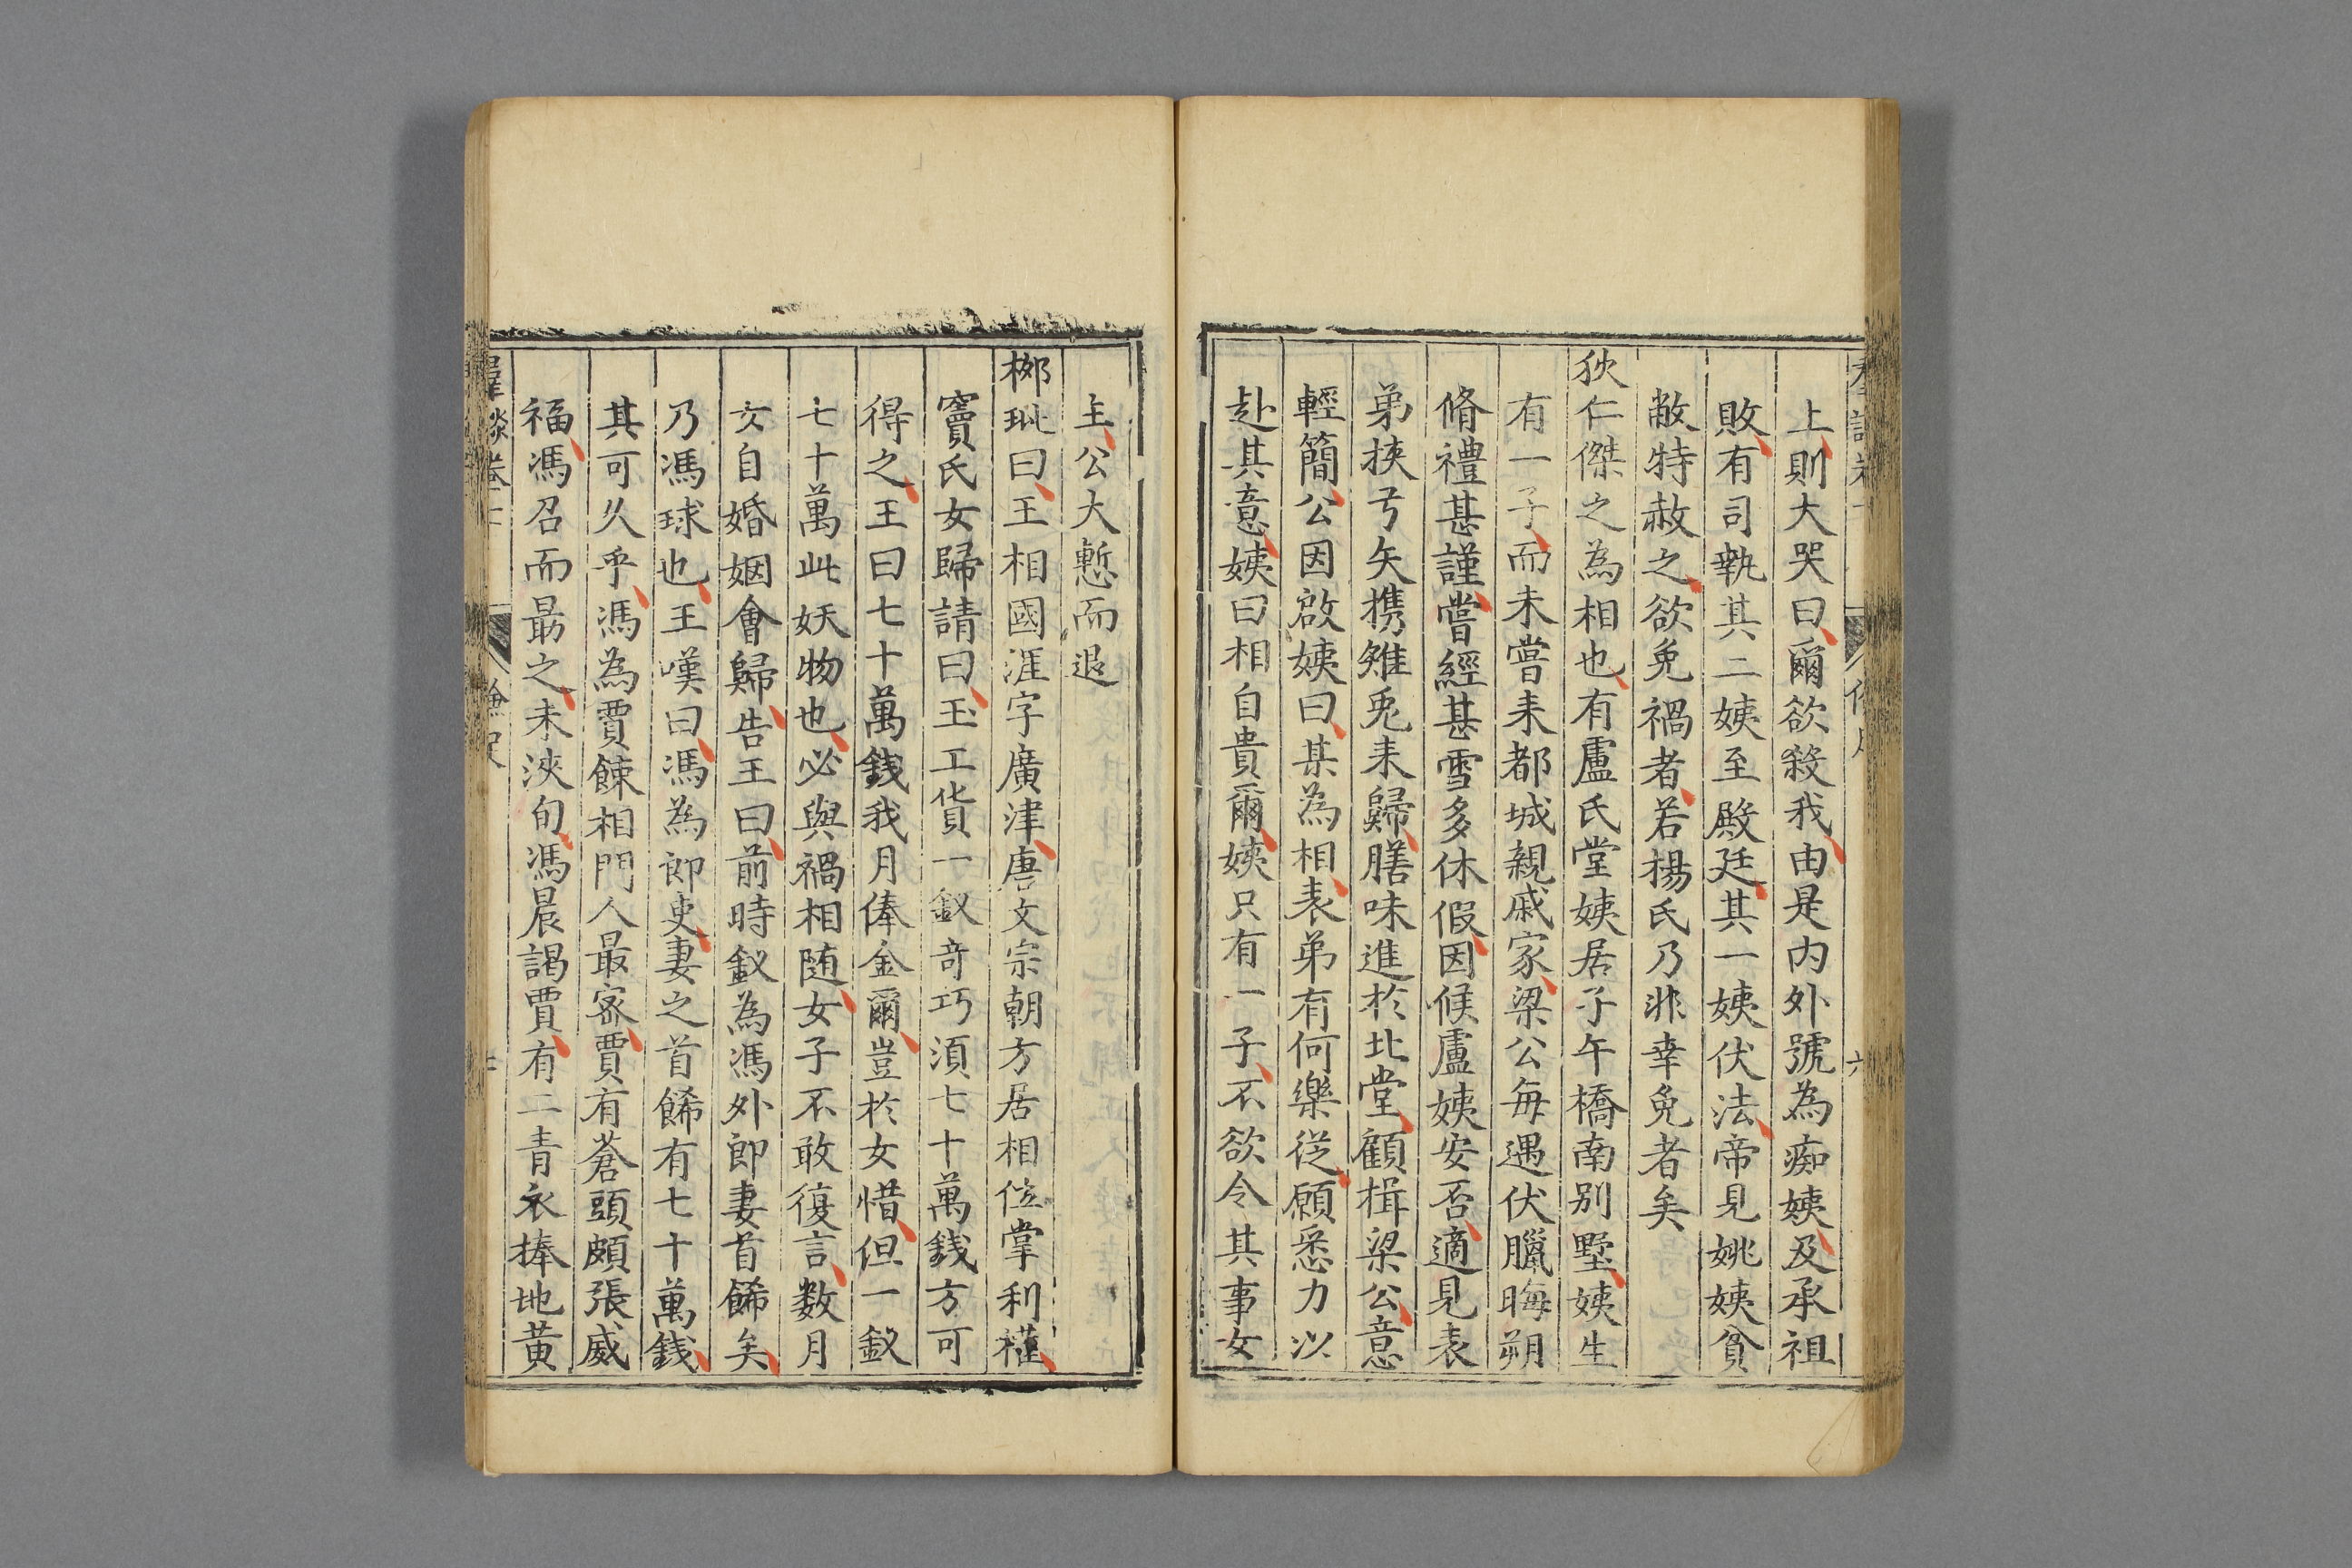 上則大哭曰爾欲殺我由是内外號為痴姨及承祖
敗有司執其二姨至殿廷其一姨伏法帝見姚姨貧
敝特赦之欲免禍者若楊氏乃非幸免者矣
狄仁傑之為相也有盧氏堂姨居子午橋南別墅姨生
有一子而未嘗来都城親戚家梁公每遇伏臘晦朔
脩禮甚謹嘗經甚雪多休假因候盧姨安否適見表
弟挾弓矢携雉兎来歸膳味進於北堂顧揖梁公意
輕簡公因啟姨曰某為相表弟有何樂從願悉力以
赴其意姨曰相自貴爾姨只有一子不欲令其事女
主公大慙而退
栁玭曰王相國涯字廣津唐文宗朝方居相位掌利權
竇氏女歸請曰玉工貨一釵竒巧須七十萬錢方可
得之王曰七十萬錢我月俸金爾豈於女惜但一釵
七十萬此妖物也必與禍相随女子不敢復言数月
女自婚姻會歸告王曰前時釵為馮外郎妻首餙矣
乃馮球也王嘆曰馮為郎吏妻之首餙有七十萬錢
其可久乎馮為賈餗相門人最密賈有蒼頭頗張威
福馮召而勗之未浹旬馮晨謁賈有二青衣捧地黄